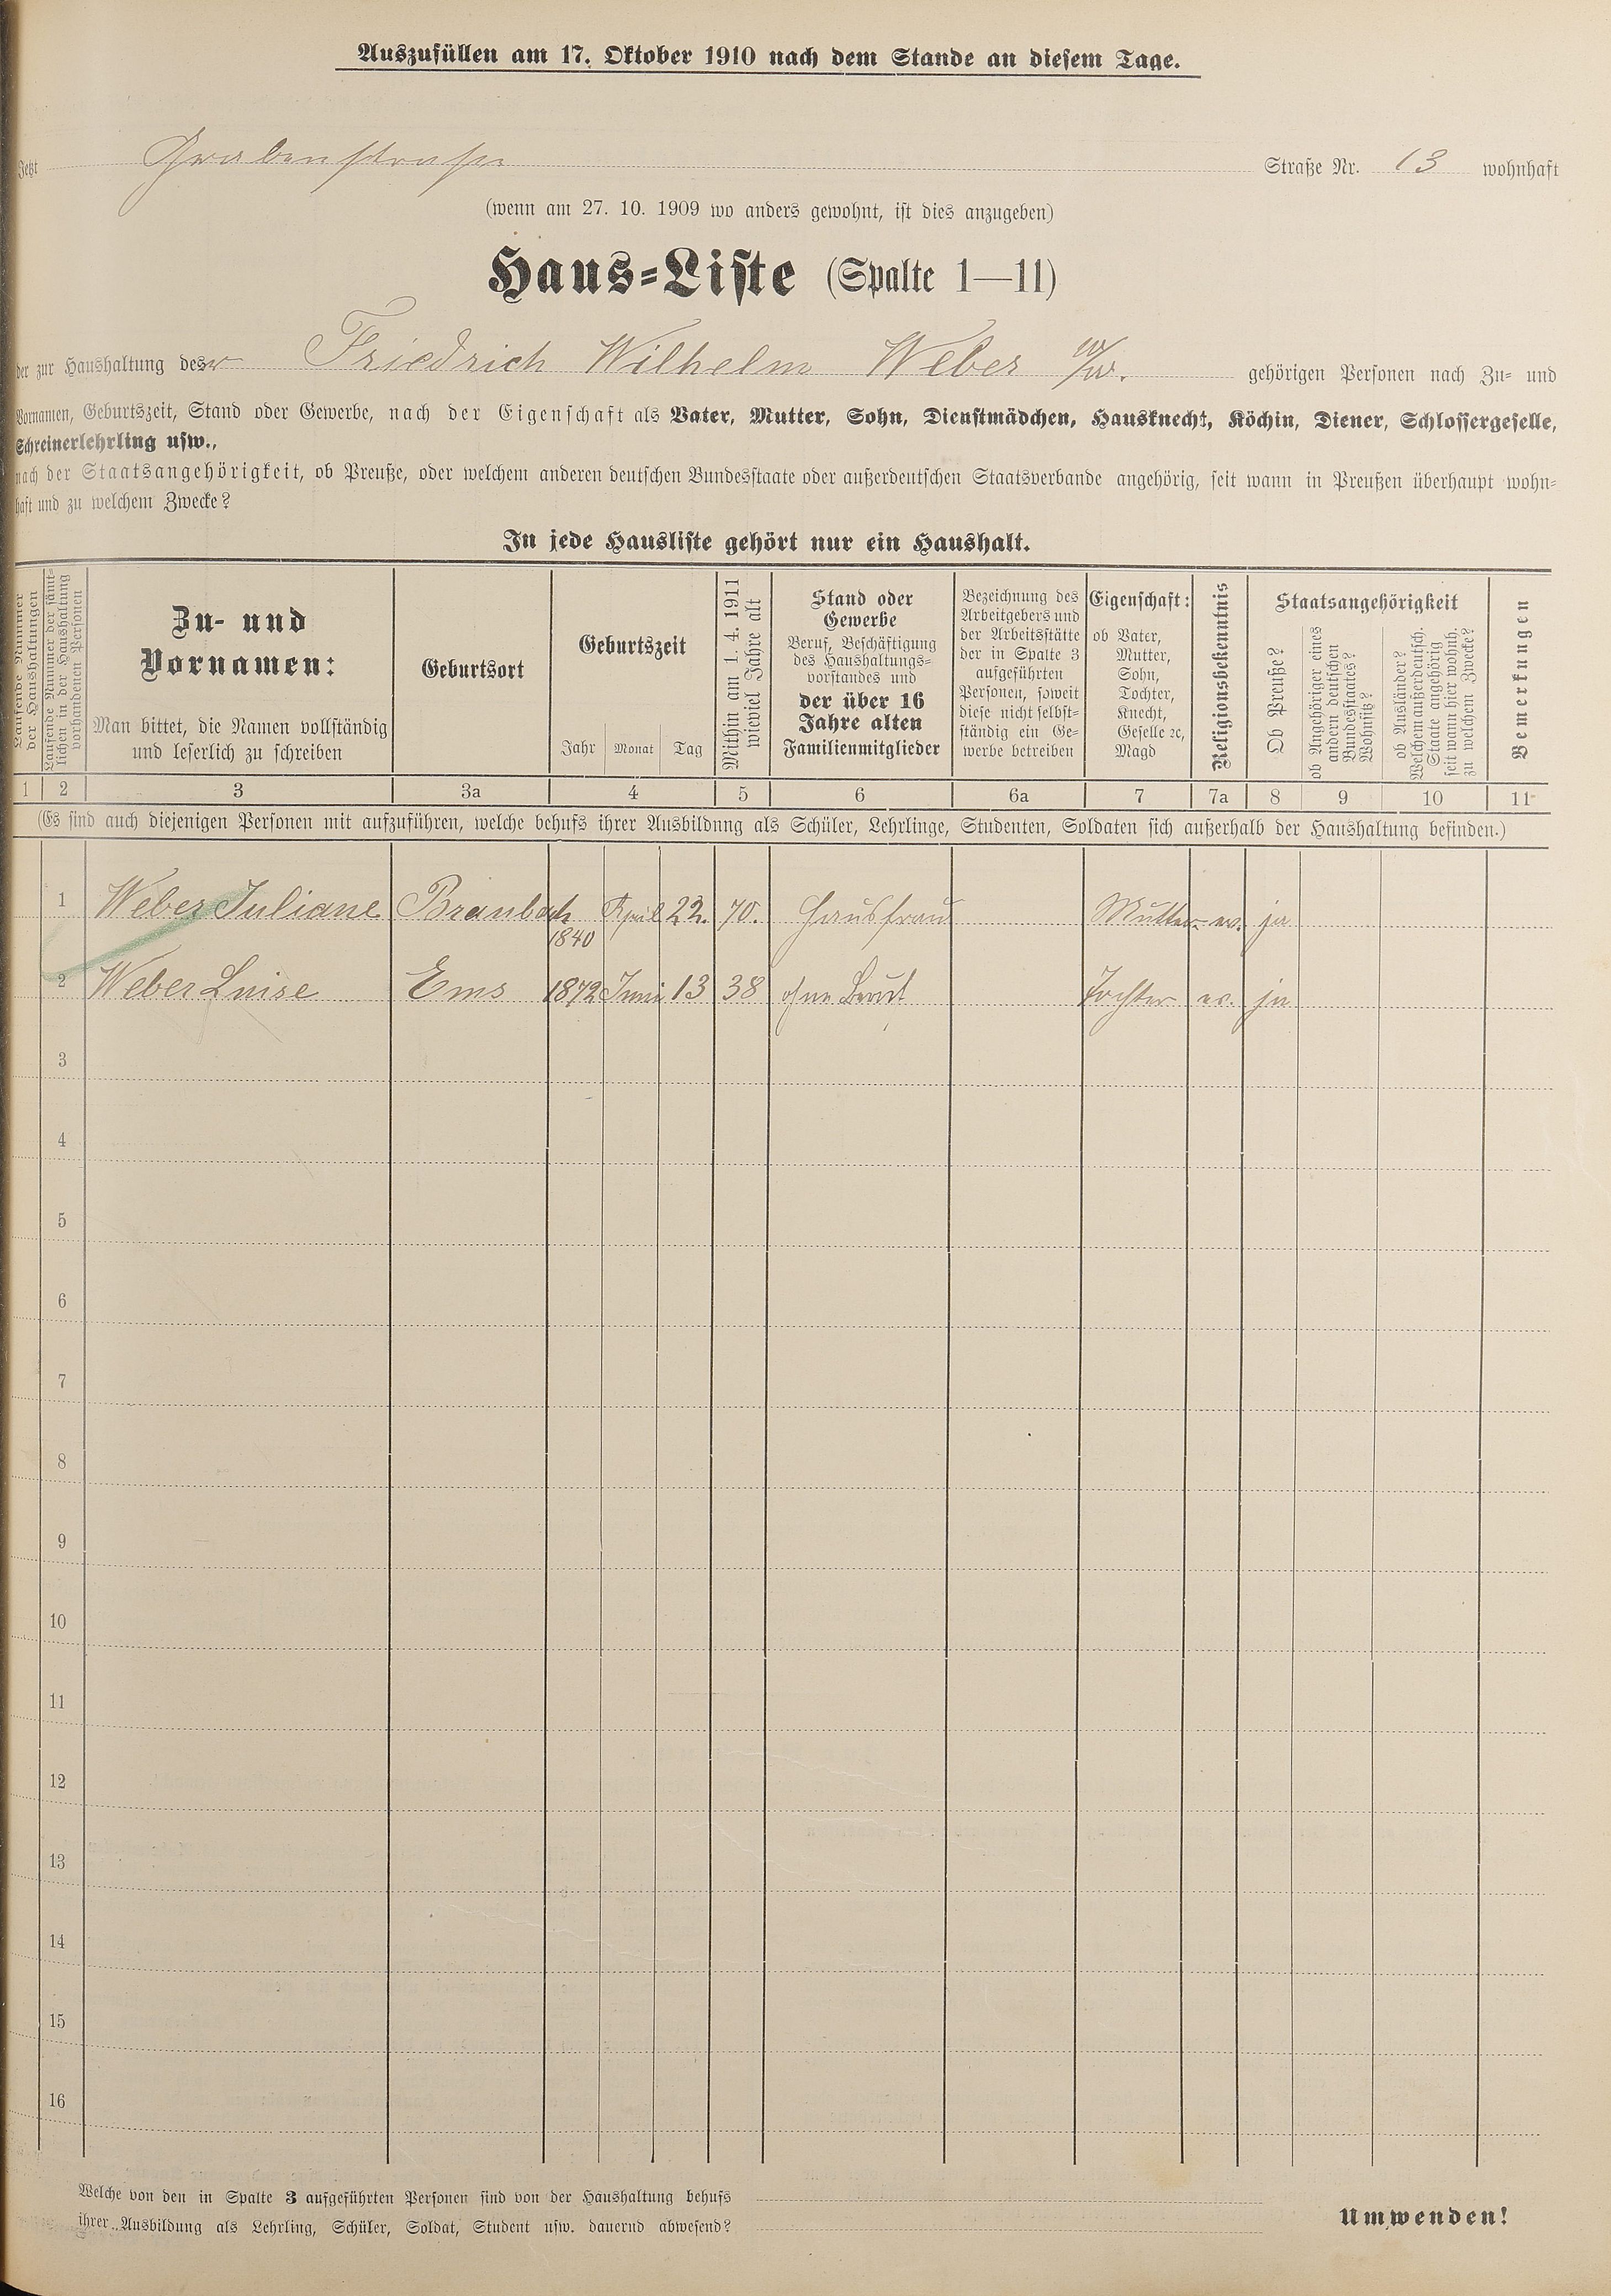 Auszufüllen am 17. Oktober 1910 nach dem Stande an diesem Tage.
Jetzt Grabenstrasse Straße Nr. 13 wohnhaft
(wenn am 27. 10. 1909 wo anders gewohnt, ist dies anzugeben)
Haus-Liste (Spalte 1—11)
der zur Haushaltung der Friedrich Wilhelm Weber ww/w. gehörigen Personen nach Zu- und
Vornamen, Geburtszeit, Stand oder Gewerbe, nach der Eigenschaft als Vater, Mutter, Sohn, Dienstmädchen, Hausknecht, Köchin, Diener, Schlossergeselle,
Schreinerlehrling usw.,
nach der Staatsangehörigkeit, ob Preuße, oder welchem anderen deutschen Bundesstaate oder außerdeutschen Staatsverbande angehörig, seit wann in Preußen überhaupt wohn-
haft und zu welchem Zwecke?
In jede Hausliste gehört nur ein Haushalt.
Laufende Nummer
der Haushaltungen
Laufende Nummer der sämt-
lichen in der Haushaltung
vorhandenen Personen
Zu- und
Vornamen:
Man bittet, die Namen vollständig
und leserlich zu schreiben
Geburtsort
Geburtszeit
Jahr Monat Tag
Mithin am 1. 4. 1911
wieviel Jahre alt
Stand oder
Gewerbe
Beruf, Beschäftigung
des Haushaltungs-
vorstandes und
der über 16
Jahre alten
Familienmitglieder
Bezeichnung des
Arbeitgebers und
der Arbeitsstätte
der in Spalte 3
aufgeführten
Personen, soweit
diese nicht selbst-
ständig ein Ge-
werbe betreiben
Eigenschaft:
ob Vater,
Mutter,
Sohn,
Tochter,
Knecht,
Geselle ꝛc,
Magd
Religionsbekenntnis
Staatsangehörigkeit
Ob Preuße?
ob Angehöriger eines
andern deutschen
Bundesstaates?
Wohnsitz?
ob Ausländer?
Welchem außerdeutsch.
Staate angehörig
seit wann hier wohnh.
zu welchem Zwecke?
Bemerkungen
1 2 3 3a 4 5 6 6a 7 7a 8 9 10 11
(Es sind auch diejenigen Personen mit aufzuführen, welche behufs ihrer Ausbildung als Schüler, Lehrlinge, Studenten, Soldaten sich außerhalb der Haushaltung befinden.)
1 Weber Juliane Braubach 1840 April 22. 70. Hausfrau Mutter ev. ja
2 Weber Luise Ems 1872 Juni 13 38 ohne Beruf Tochter ev. ja
3
4
5
6
7
8
9
10
11
12
13
14
15
16
Welche von den in Spalte 3 aufgeführten Personen sind von der Haushaltung behufs
ihrer Ausbildung als Lehrling, Schüler, Soldat, Student usw. dauernd abwesend?
Umwenden!